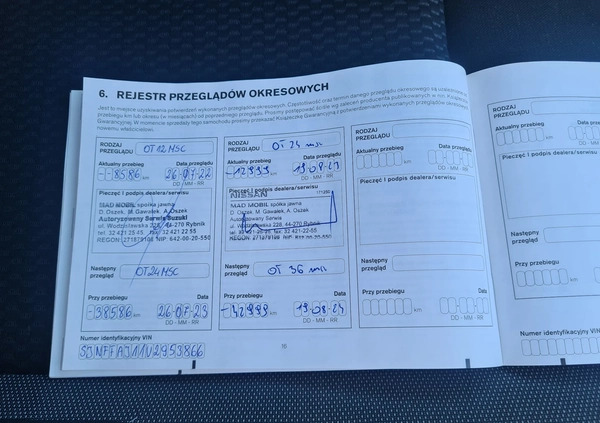 6. REJESTR PRZEGLĄDÓW OKRESOWYCH
Jest to miejsce uzyskiwania potwierdzeń wykonanych przeglądów okresowych. Częstotliwość oraz termin danego przeglądu okresowego są uzależnione od
przebiegu km lub okresu (w miesiącach) od poprzedniego przeglądu. Prosimy postępować ściśle wg zaleceń producenta publikowanych w nin. Książeczce
Gwarancyjnej. W momencie sprzedaży tego samochodu prosimy przekazać Książeczkę Gwarancyjną z potwierdzeniami wykonanych przeglądów okresowych
nowemu właścicielowi.
RODZAJ
PRZEGLĄDU OT 12 MSC
Aktualny przebieg Data przeglądu
--8586 km 26-07-22
DD - MM - RR
Pieczęć i podpis dealera/serwisu
MAD MOBIL spółka jawna
D. Oszek, M. Gawałek, A. Oszek
Autoryzowany Serwis Suzuki
ul. Wodzisławska 228, 44-270 Rybnik
tel. 32 421 25 45 fax. 32 421 22 55
REGON 271879106 NIP 642-00-20-550
Następny
przegląd OT 24 MSC
Przy przebiegu Data
-38586 km 26-07-23
DD - MM - RR
RODZAJ
PRZEGLĄDU OT 24 msc
Aktualny przebieg Data przeglądu
-12999 km 19-08-23
DD - MM - RR
Pieczęć i podpis dealera/serwisu
NISSAN
MAD MOBIL spółka jawna
D. Oszek, M. Gawałek, A. Oszek
Autoryzowany Serwis
ul. Wodzisławska 228, 44-270 Rybnik
REGON 271879106 NIP 642-00-20-550
Następny
przegląd OT 36 msc
Przy przebiegu Data
-42999 km 19-08-24
DD - MM - RR
RODZAJ
PRZEGLĄDU
Aktualny przebieg Data przeglądu
km
DD - MM - RR
Pieczęć i podpis dealera/serwisu
Następny
przegląd
Przy przebiegu Data
km
DD - MM - RR
Numer identyfikacyjny VIN
SJNFFAJ11U2953866
RODZAJ
PRZEGLĄDU
Aktualny przebieg
km
Pieczęć i podpis dealera/serwisu
Następny
przegląd
Przy przebiegu
km
Numer identyfikacyjny VIN